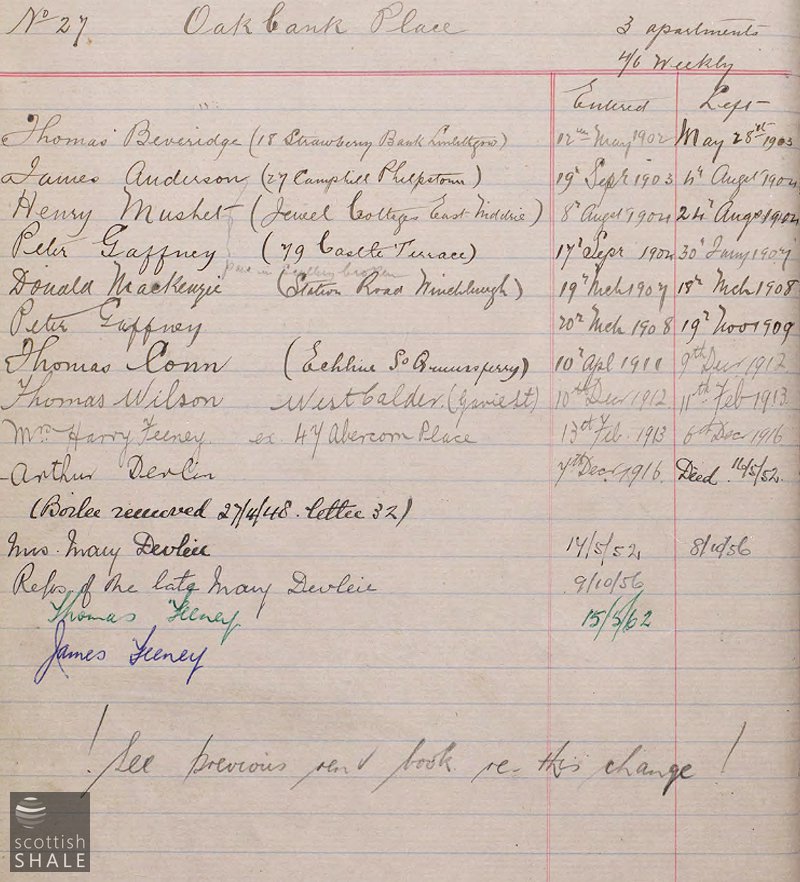 No 27 Oakbank Place 3 apartments
4/6 Weekly
Entered Left
Thomas Beveridge (18 Strawberry Bank Linlithgow) 12th May 1902 May 28th 1903
James Anderson (27 Camphill Philpstoun) 19th Sepr 1903 4th Augst 1904
Henry Mushet (Jewel Cottages East Niddrie) 8th Augst 1904 24th Augst 1904
Peter Gaffney (79 Castle Terrace) 17th Sepr 1904 1907
broken
Donald MacKenzie (Station Road Winchburgh) 19th Mch 1907 18th Mch 1908
Peter Gaffney 20th Mch 1908 19th Nov 1909
Thomas Conn (Echline So Queensferry) 10th Apl 1911 9th Decr 1912
Thomas Wilson West Calder. 10th Decr 1912 11th Feb 1913
Mrs Harry Feeney. ex. 47 Abercorn Place 13th Feb. 1913 6th Dec 1916
Arthur Devlin 7th Decr. 1916. Died. 16/5/52.
(Boiler removed 27/4/48. letter 32)
Mrs. Mary Devlin 17/5/52 8/10/56
Reps of the late Mary Devlin 9/10/56
Thomas Feeney 15/5/62
James Feeney
! See previous rent book re- this change !
scottish
SHALE